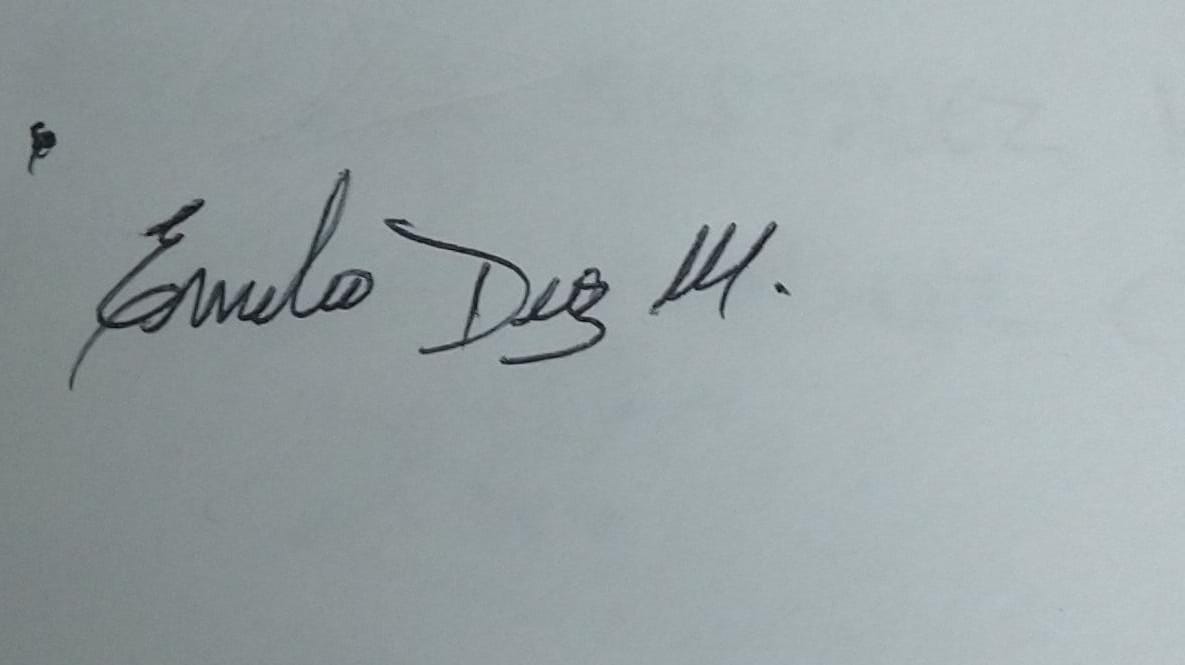 Emilio Diez M.